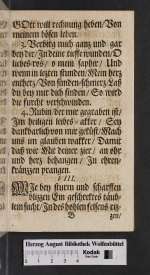 GOtt woll rechnung heben/ Von
meinem bösen leben.
3. Verbirg mich gantz und gar
bey dir/ In deine tieffe wunden/ O
liebes-ros/ o mein saphir/ Und
wenn in letzten stunden/ Mein hertz
entbert/ Von sünden-schmertz/ Laß
dich mir finden/ So wird
die furcht verschwinden.
4. Rubin der mir gegeben ist/
Im heilgen liebes- / Sey
danckbarlich von mir geküst/ Mach
uns im glauben wacker/ Damit
daß wie Mit deiner zier/ an ohr
und hertz behangen/ In ehren-
kräntzen prangen.
VIII.
WJe bey sturm und scharffen
blitzen Ein geschrecktes täub-
lein sucht/ In des holen felsens
B gen/
Herzog August Bibliothek Wolfenbüttel
Kodak